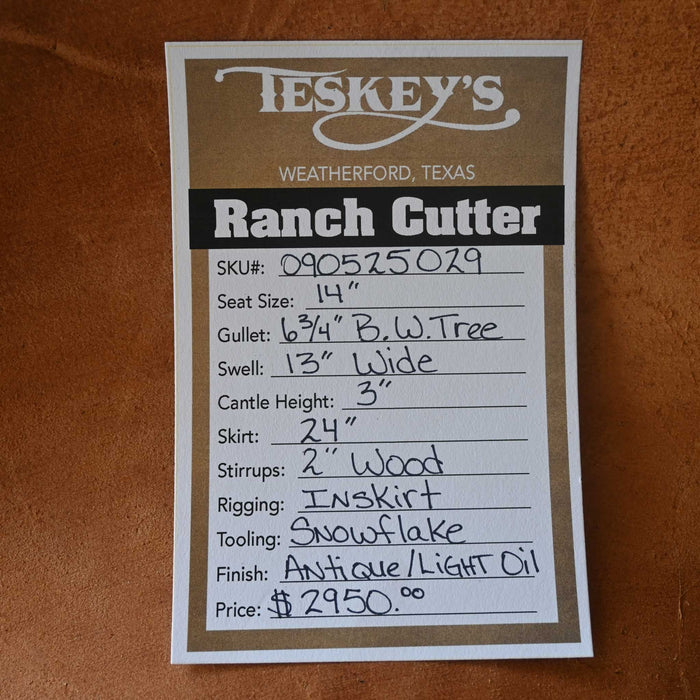 TESKEY'S
WEATHERFORD, TEXAS
Ranch Cutter
SKU#: 090525029
Seat Size: 14"
Gullet: 6 3/4" B.W. Tree
Swell: 13" Wide
Cantle Height: 3"
Skirt: 24"
Stirrups: 2" Wood
Rigging: Inskirt
Tooling: Snowflake
Finish: Antique/Light Oil
Price: $2950.00